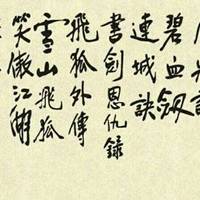 碧血劍
連城訣
書劍恩仇錄
飛狐外傳
雪山飛狐
笑傲江湖